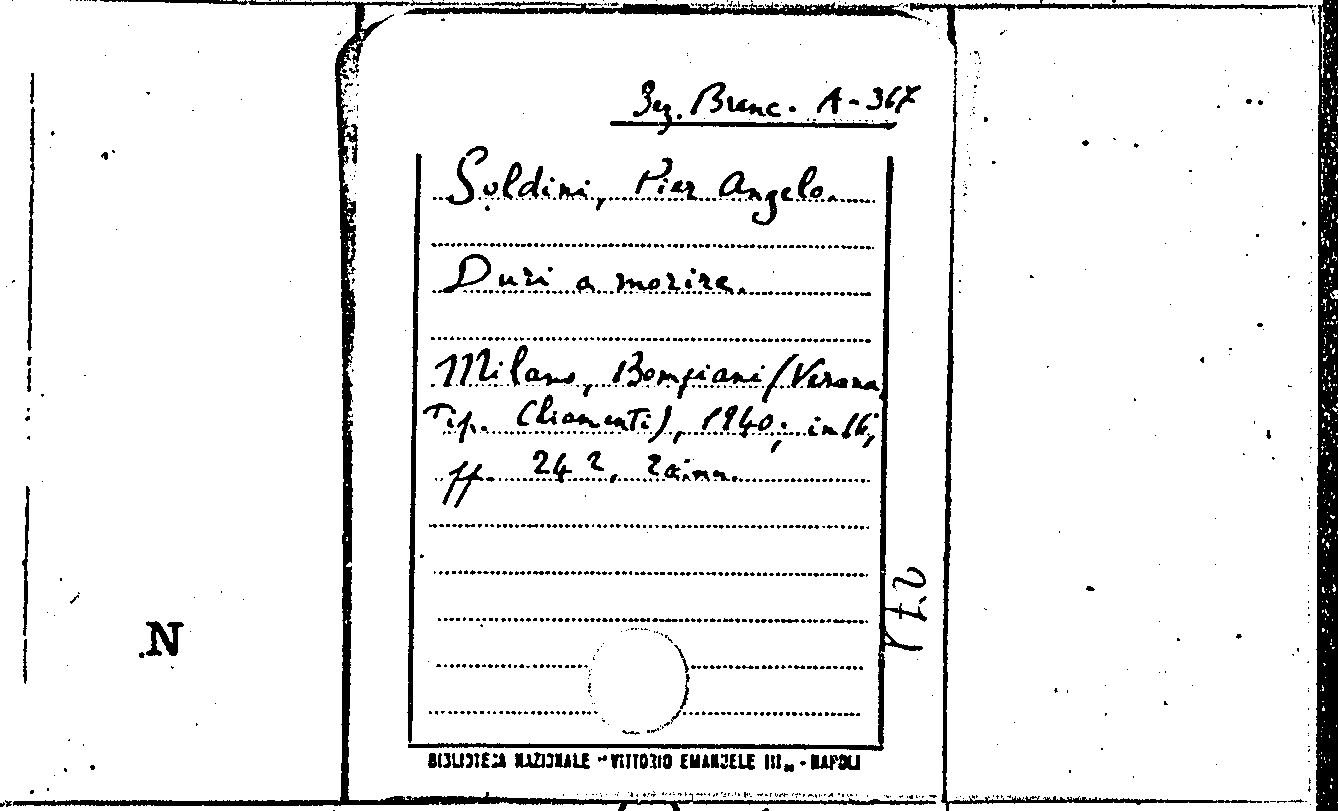 Sez. Branc. A-367
Soldini, Pier Angelo.
Duri a morire.
Milano, Bompiani (Verona,
Tip. Chiamenti), 1940; in 16;
pp. 242, 2 c. nn.
N
BIBLIOTECA NAZIONALE "VITTORIO EMANUELE III" - NAPOLI